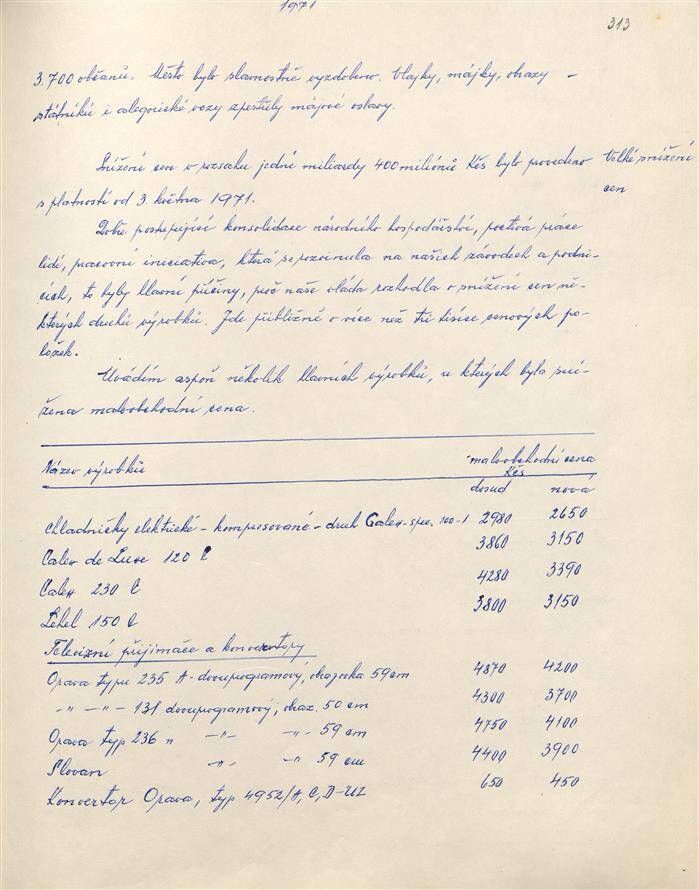 1971
313
3.700 občanů. Město bylo slavnostně vyzdobeno. Vlajky, májky, obrazy –
státníků i alegorické vozy zpestřily májové oslavy.
Snížení cen v rozsahu jedné miliardy 400 miliónů Kčs bylo provedeno
s platností od 3. května 1971.
Velké snížení
cen
Dobře postupující konsolidace národního hospodářství, poctivá práce
lidí, pracovní iniciativa, která se rozvinula na našich závodech a podni-
cích, to byly hlavní příčiny, proč naše vláda rozhodla o snížení cen ně-
kterých druhů výrobků. Jde přibližně o více než tři tisíce cenových po-
ložek.
Uvádím aspoň několik hlavních výrobků, u kterých byla sní-
žena maloobchodní cena.
Název výrobků maloobchodní cena
Kčs
dosud nová
Chladničky elektrické – kompresované – druh Calex-spec. 100-l 2980 2650
Calex de Luxe 120 l 3860 3150
Calex 230 l 4280 3390
Lehel 150 l 3800 3150
Televizní přijimače a konvertory
Orava typu 235 A - dvouprogramový, obrazovka 59 cm 4870 4200
–"– –"– 131 dvouprogramový, obraz. 50 cm 4300 3700
Orava typ 236 " –"– –"– 59 cm 4750 4100
Slovan –"– –"– 59 cm 4400 3900
Konvertor Orava, typ 4952/A, C, D-UZ 650 450